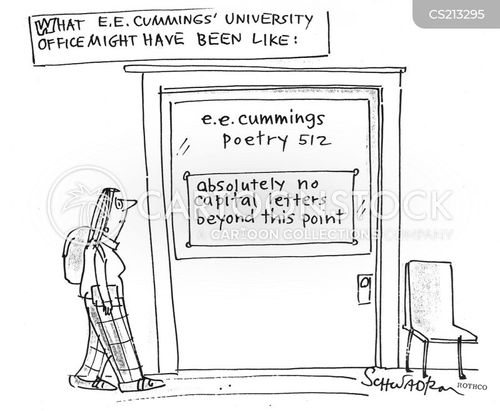 CS213295
WHAT E.E. CUMMINGS' UNIVERSITY
OFFICE MIGHT HAVE BEEN LIKE:
e.e. cummings
Poetry 512
absolutely no
capital letters
beyond this point
CARTOONSTOCK
CARTOON COLLECTIONS COMPANY
SCHWADRON
ROTHCO